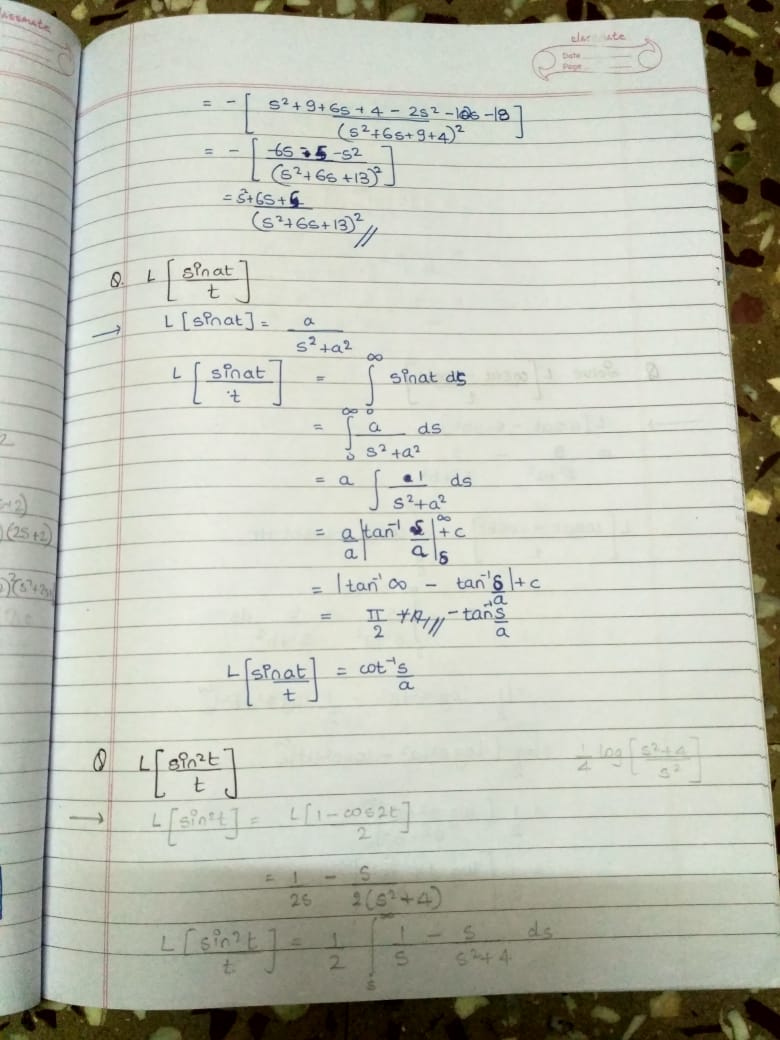 classmate
Date
Page
= - [ s²+9+6s+4-2s²-12s-18 / (s²+6s+9+4)² ]
= - [ -6s-5-s² / (s²+6s+13)² ]
= s²+6s+5 / (s²+6s+13)² //
Q. L [ sinat / t ]
→ L[sinat] = a / s²+a²
L [ sinat / t ] = ∫ ∞ 0 sinat ds
= ∫ ∞ s a / s²+a² ds
= a ∫ 1 / s²+a² ds
= a/a |tan⁻¹ s/a| ∞ s +c
= |tan⁻¹ ∞ - tan⁻¹ s/a| +c
= π/2 // - tan⁻¹ s/a
L [ sinat / t ] = cot⁻¹ s/a
Q L [ sin²t / t ] 1/4 log [ s²+4 / s² ]
→ L[sin²t] = L[1-cos2t / 2]
= 1/2s - s / 2(s²+4)
L [ sin²t / t ] = 1/2 ∫ ∞ s 1/s - s / s²+4 ds